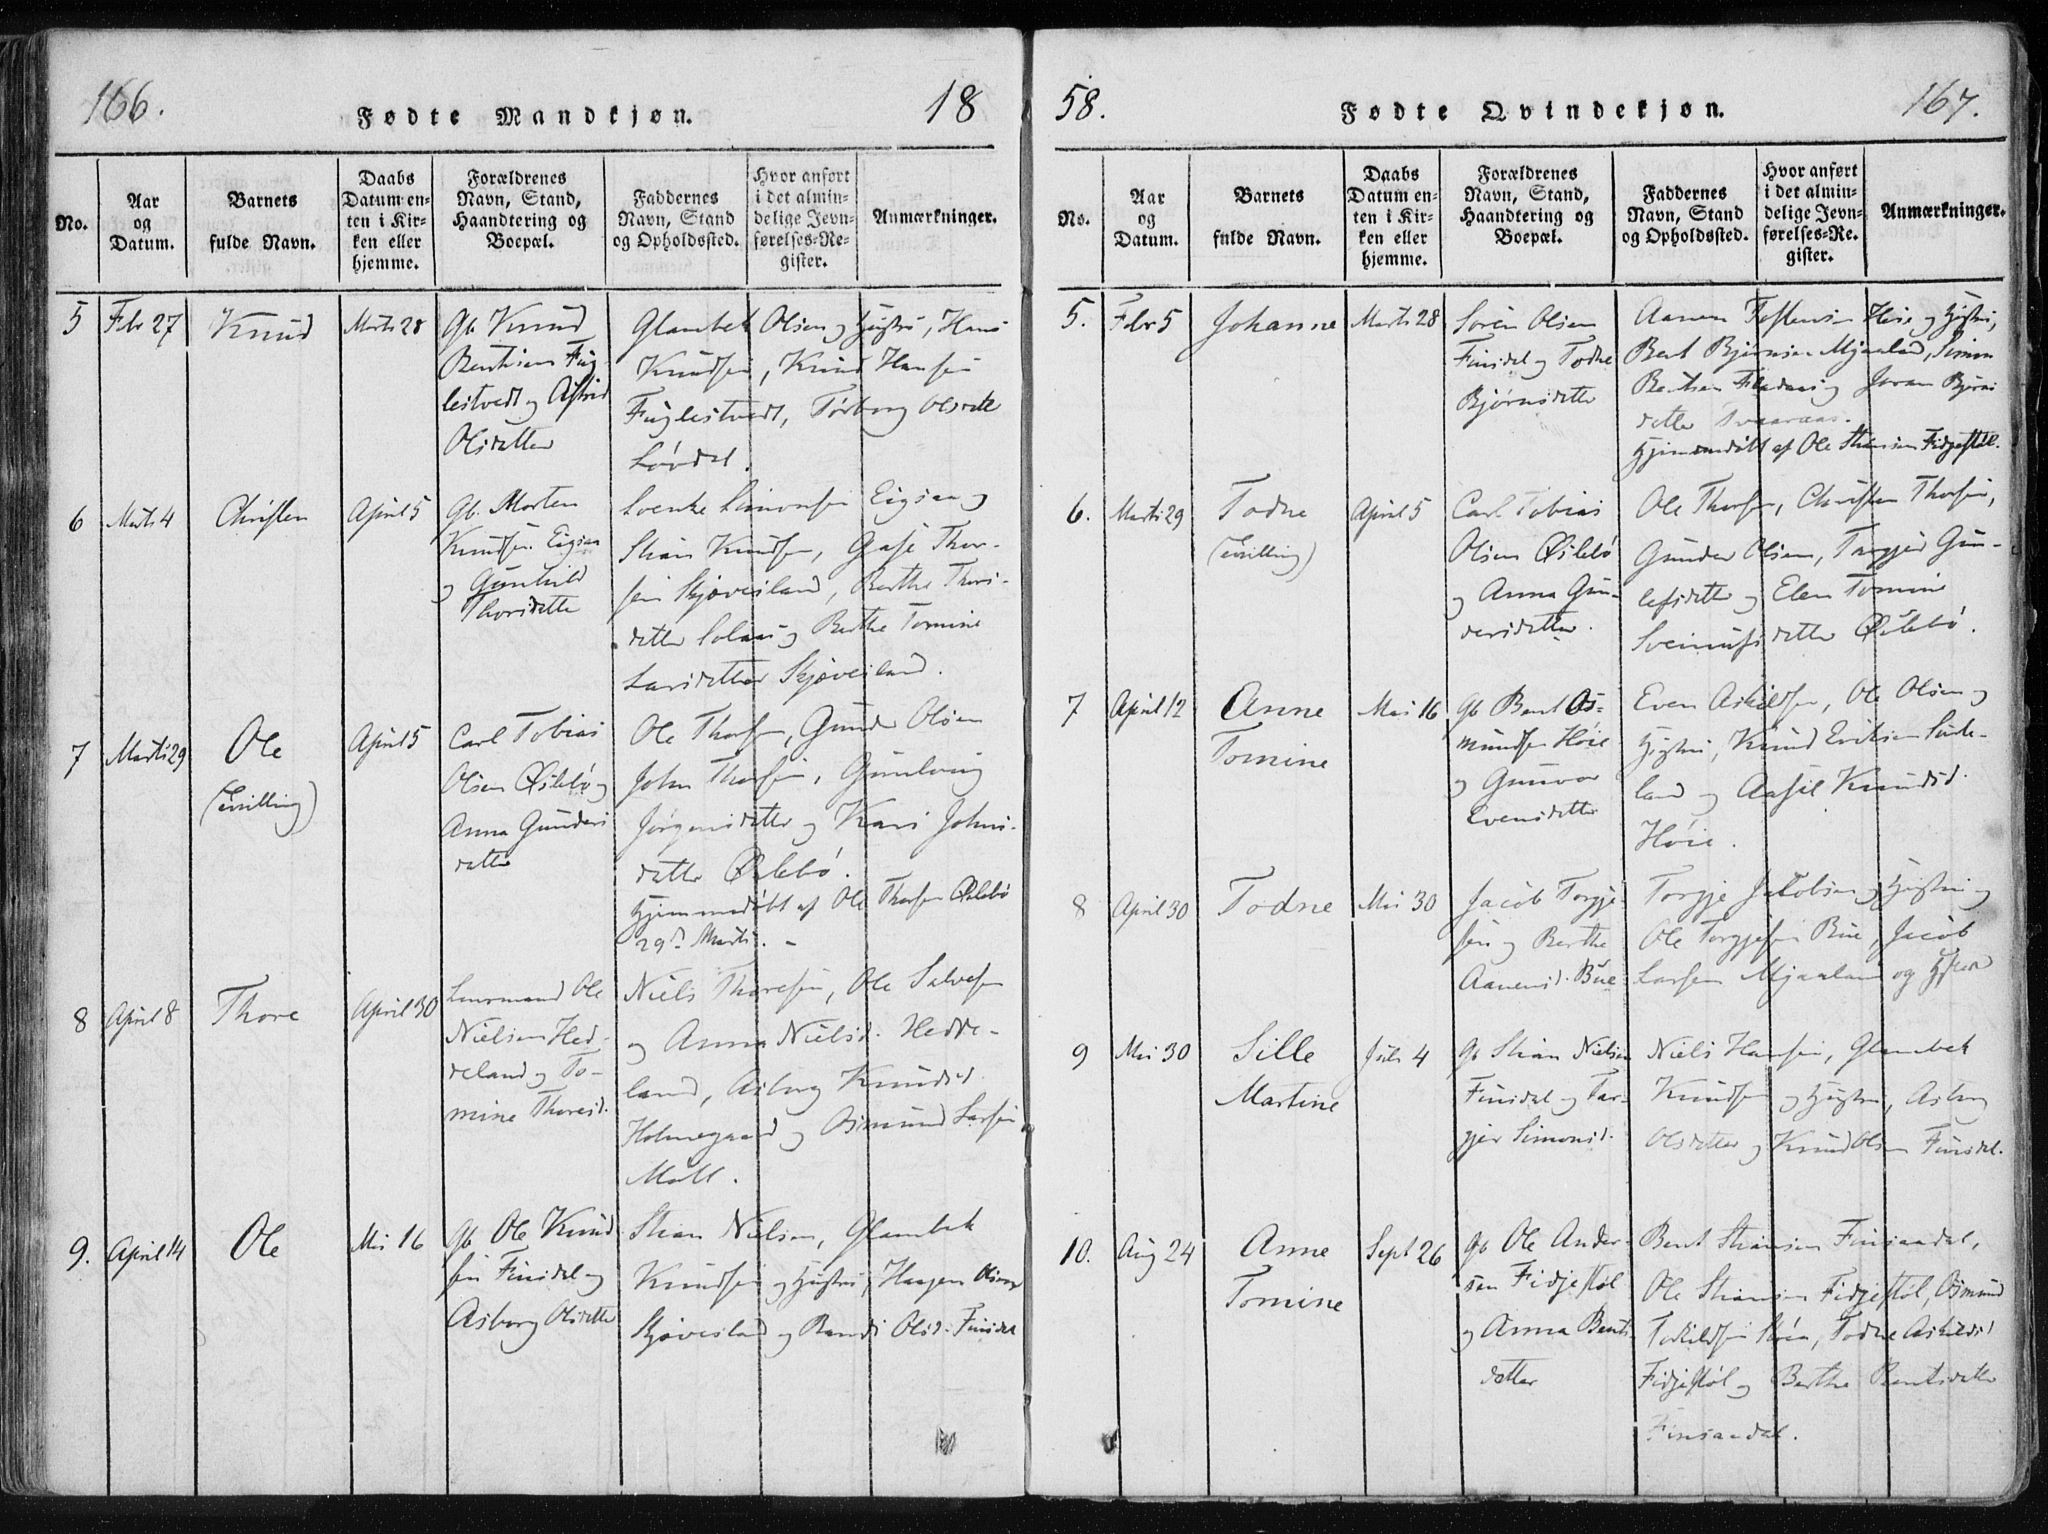 166.
Fødte Mandkjøn.
18
No.
Aar
og
Datum.
Barnets
fulde Navn.
Daabs
Datum en-
ten i Kir-
ken eller
hjemme.
Forældrenes
Navn, Stand,
Haandtering og
Boepæl.
Faddernes
Navn, Stand
og Opholdssted.
Hvor anført
i det almin-
delige Jevn-
førelses-Re-
gister.
Anmærkninger.
5
Febr 27
Knud
Marts 28
Gb. Knud
Bentsen Fug-
lestvedt og Astrid
Olsdatter
Glambek Olsen og Hustru, Hans
Knudsen, Knud Hansen
Fuglestvedt, Torborg Olsdatter
Løvdal.
6
Marts 4
Christen
April 5
Gb. Morten
Knudsen Eigsaa
og Gunhild
Thorsdatter
Svenke Simonsen Eigsaa og
Stian Knudsen, Gase Thor-
sen Skjøveisland, Berthe Thors-
datter Solaas og Berthe Tomine
Larsdatter Skjøveisland.
7
Marts 29
Ole
(tvilling)
April 5
Carl Tobias
Olsen Øslebø og
Anna Gunders
datter
Ole Thorsen, Gunder Olsen
John Thorsen, Gundvaig
Jørgensdatter og Kari Johns-
datter Øslebø.
Hjemmedøbt af Ole Thorsen Øslebø
29de Marts. -
8
April 8
Thore
April 30
Lensmand Ole
Nielsen Hed-
deland og To-
mine Thoresd.
Niels Thoresen, Ole Salvesen
og Anna Nielsd. Hedde-
land, Asborg Knudsd.
Holmegaard og Osmund Larsen
Moll.
9.
April 14
Ole
Mai 16
Gb. Ole Knud
sen Finsdal og
Asborg Olsdatter
Stian Nielsen, Glambek
Knudsen og Hustru, Haagen Olsen
Skjøvesland og Randi Olsd. Finsdal
58.
Fødte Qvindekjøn.
167.
No.
Aar
og
Datum.
Barnets
fulde Navn.
Daabs
Datum en-
ten i Kir-
ken eller
hjemme.
Forældrenes
Navn, Stand,
Haandtering og
Boepæl.
Faddernes
Navn, Stand
og Opholdssted.
Hvor anført
i det almin-
delige Jevn-
førelses-Re-
gister.
Anmærkninger.
5.
Febr 5
Johanne
Marts 28
Søren Olsen
Finsdal og Todne
Bjørnsdatter
Aanen Høie og Hustru,
Bent Bjørnsen Mjaaland, Simon
Bentsen og Joran Bjørns
datter
Hjemmedøbt af Ole Stiansen Fidjestøl.
6.
Marts 29
Todne
(tvilling)
April 5
Carl Tobias
Olsen Øslebø
og Anna Gun-
dersdatter.
Ole Thorsen, Christen Thorsen,
Gunder Olsen, Targjer Gun-
lefsdatter og Elen Tomine
Sveinufsdatter Øslebø.
7
April 12
Anne
Tomine
Mai 16
Gb Bent Os-
mundsen Høie
og Gunvor
Evensdatter
Even Askildsen, Ole Olsen og
Hustru, Knud Eriksen
land og Aasil Knudsd.
Høie.
8
April 30
Todne
Mai 30
Jacob Torgje-
sen og Berthe
Aanensd. Bue
Torgje Jakobsen og Hustru og
Ole Torgjesen Bue, Jacob
Larsen Mjaaland og Hustru
9
Mai 30
Sille
Martine
Juli 4
Gb Stian Nielsen
Finsdal og Tar-
gjer Simonsd.
Niels Hansen, Glambek
Knudsen og Hustru, Asborg
Olsdatter og Knud Olsen Finsdal.
10.
Aug 24
Anne
Tomine
Sept 26
Gb Ole Ander-
sen Fidjestøl
og Anna Bents
datter
Bent Stiansen Finsaadal,
Ole Stiansen Fidjestøl, Osmund
Torkildsen Støen, Todne Askildsd
Fidjestøl og Berthe Bentsdatter
Finsaadal.